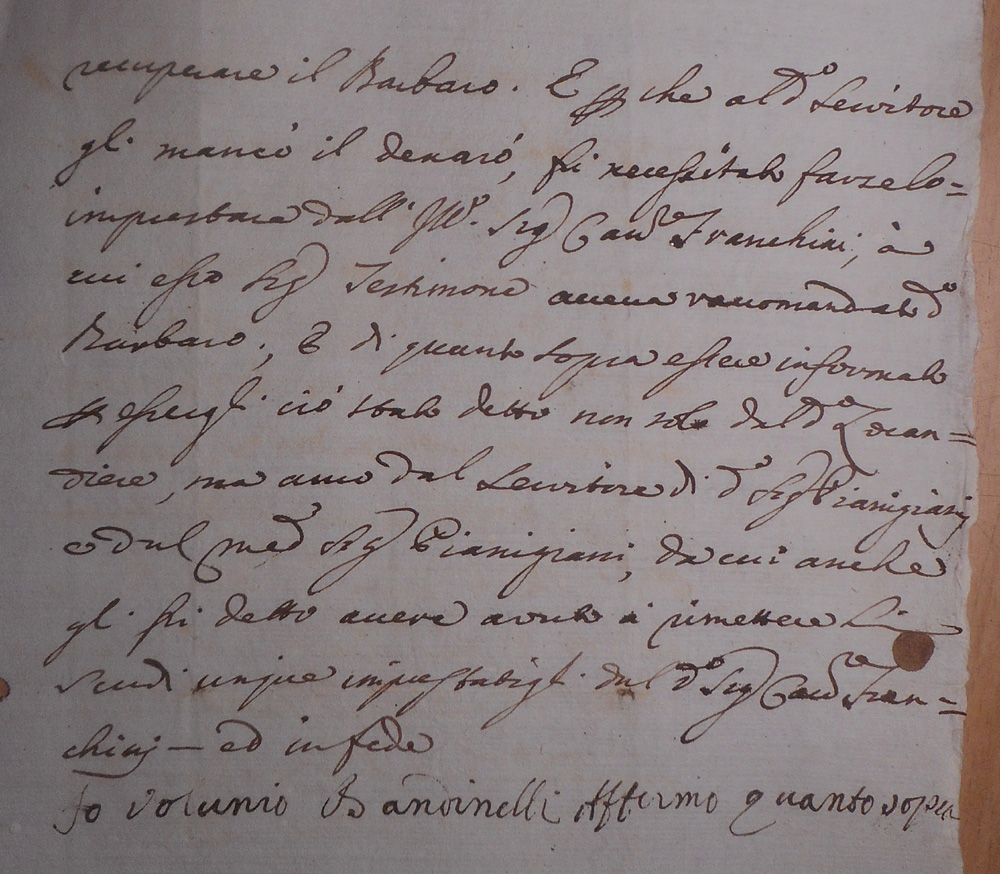 recuperare il Barbaro. E p che al d.o Servitore
gli mancò il denaro, fù necessitato farselo=
imprestare dall' Ill.o Sig Cav.re Franchini, à
cui esso Sig Testimone aveva racomandato d.o
Barbaro, E di quanto sopra essere informato
p essergli ciò stato detto non solo dal d.o Locan=
diere, ma anco dal Servitore di d.o Sig Pianigiani
e dal med.o Sig Pianigiani, da cui anche
gli fù detto avere avuto à rimettere li
scudi cinque imprestatigli dal d.o Sig Cav.re Fran=
chinj — ed in fede
Io Volunio Bandinelli Affermo quanto sopra